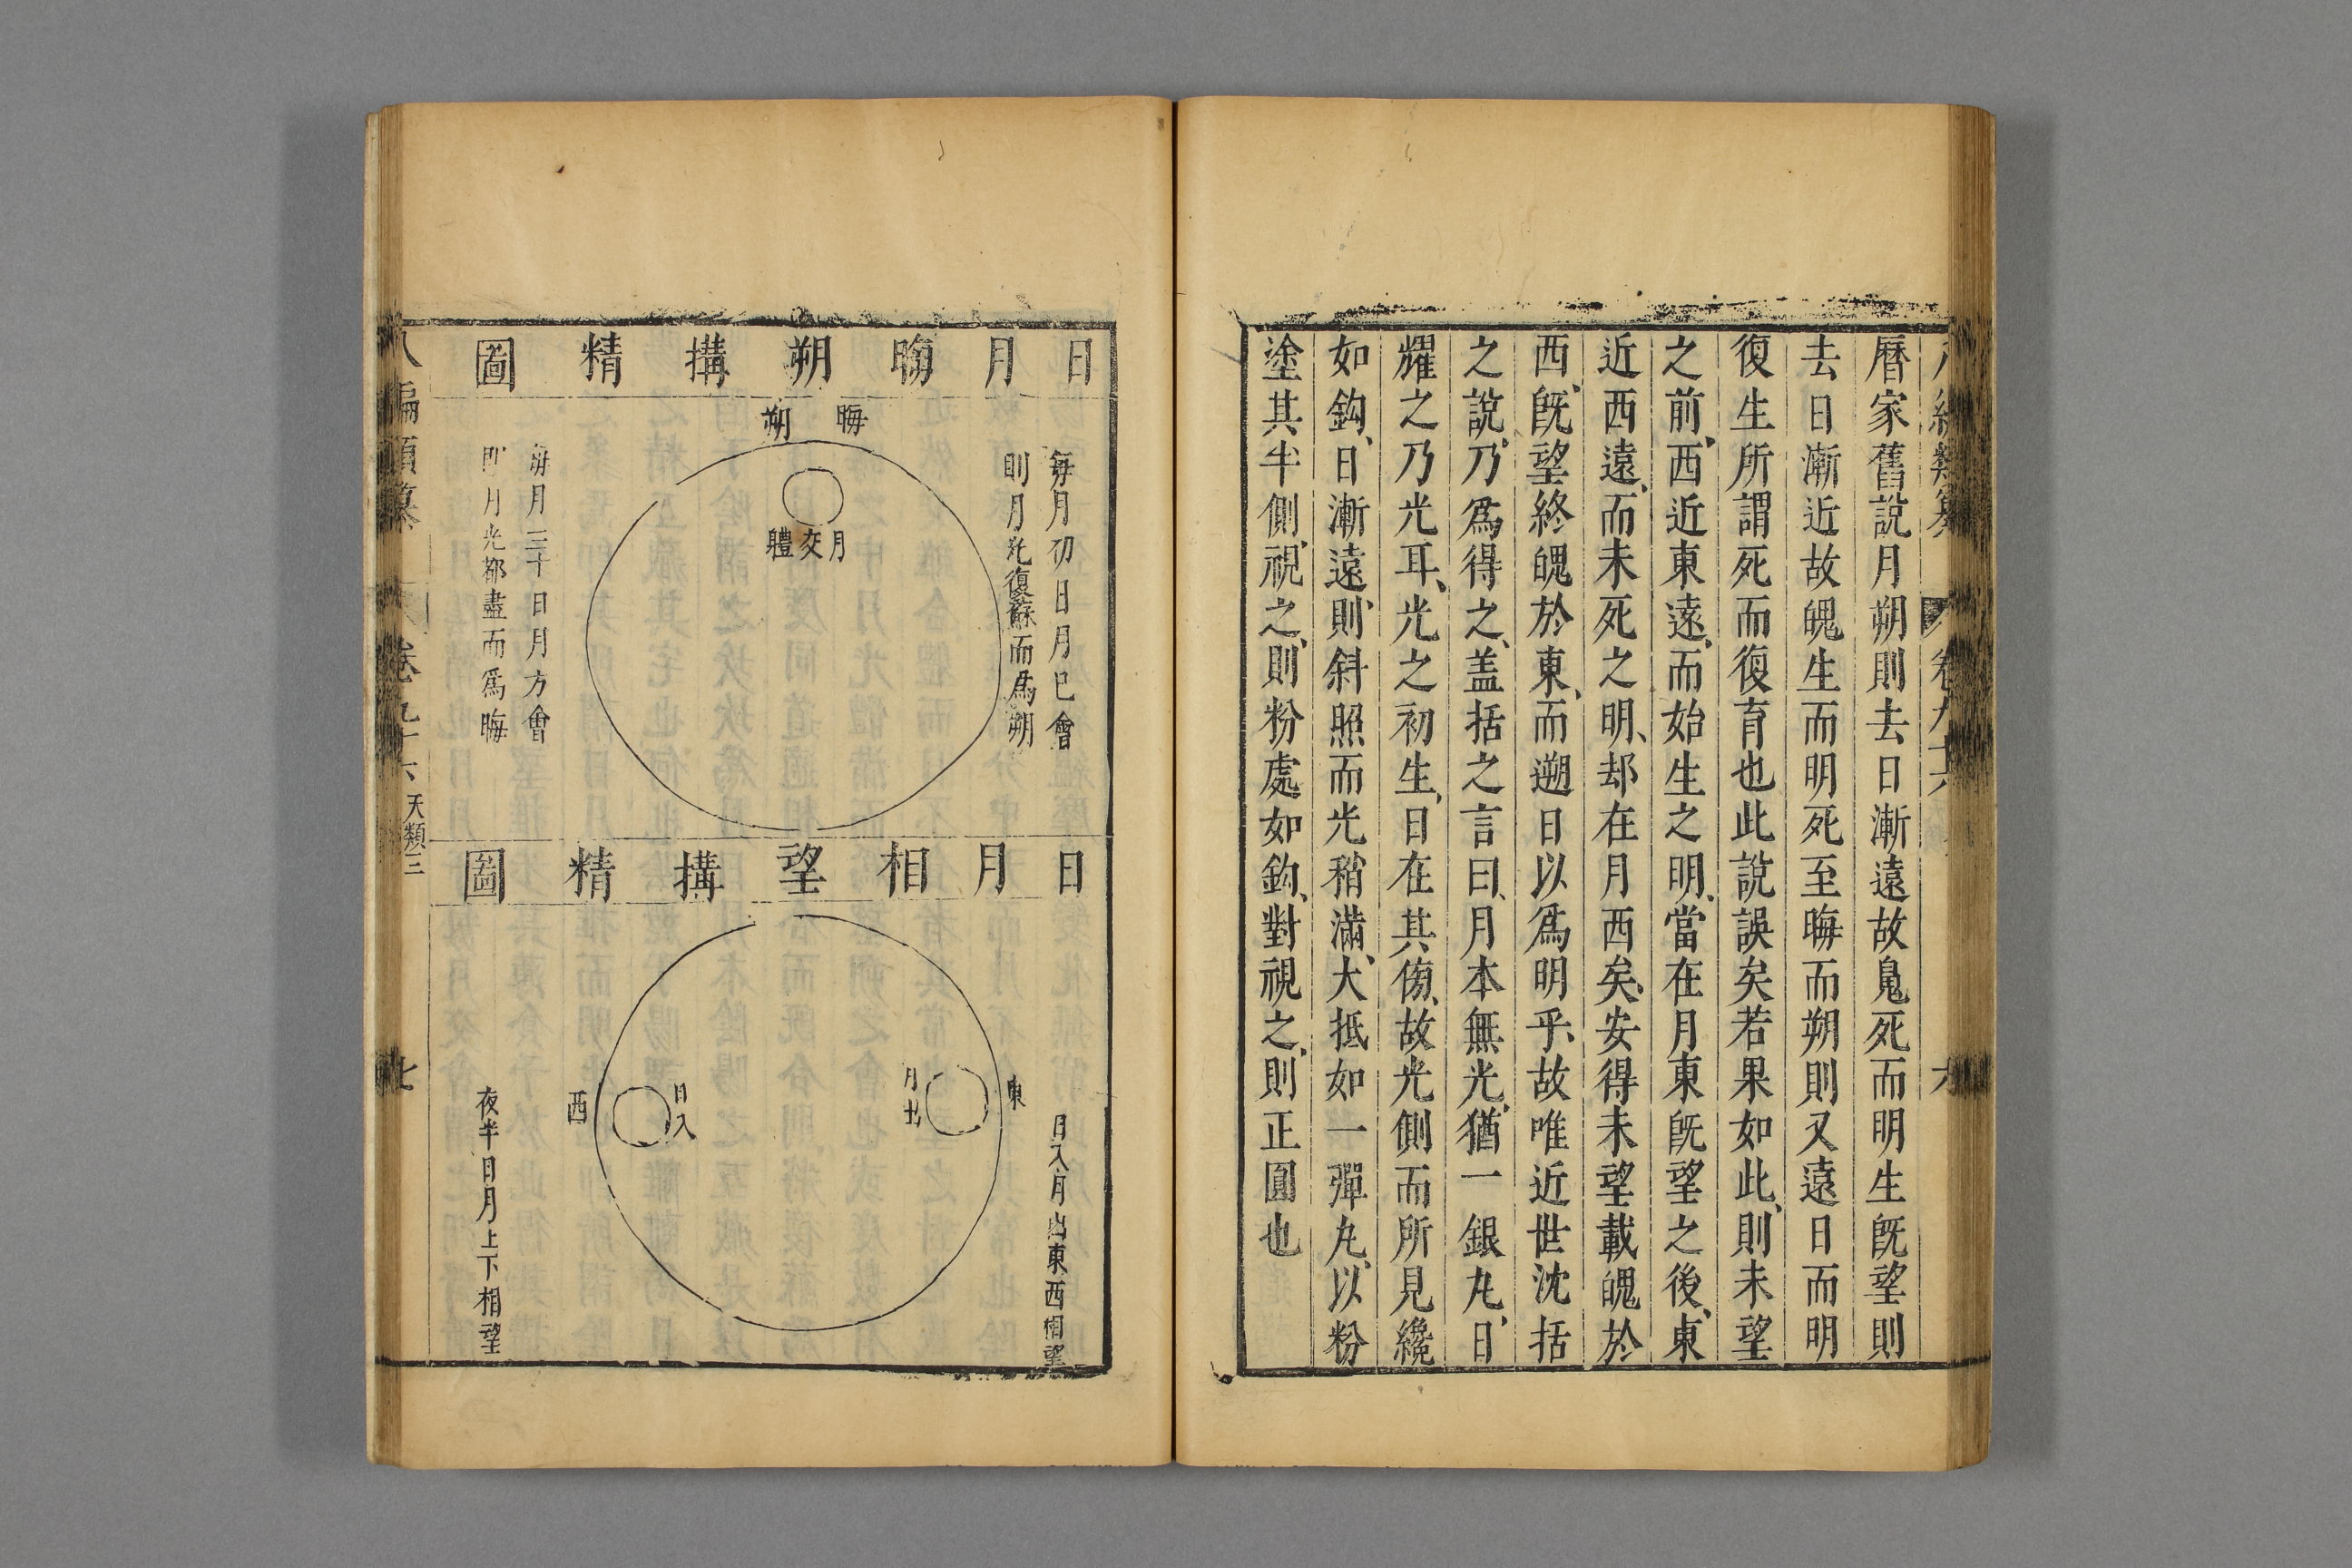 曆家舊說月朔則去日漸遠故鬼死而明生旣望則
去日漸近故魄生而明死至晦而朔則又遠日而明
復生所謂死而復育也此說誤矣若果如此、則未望
之前、西近東遠、而始生之明、當在月東旣望之後、東
近西遠、而未死之明、却在月西矣、安得未望載魄於
西、旣望終魄於東、而遡日以爲明乎、故唯近世沈括
之說、乃爲得之、盖括之言曰、月本無光、猶一銀丸、日
耀之乃光耳、光之初生、日在其傍、故光側而所見纔
如鈎、日漸遠、則斜照而光稍滿、大抵如一彈丸、以粉
塗其半側、視之、則粉處如鈎、對視之、則正圓也
日月晦朔搆精圖
晦
朔
每月初日月已會
則月光復蘇而爲朔
月交體
每月三十日月方會
則月光都盡而爲晦
日月相望搆精圖
日入月出東西相望
東
月出
日入
西
夜半日月上下相望
八編類纂
卷九十六
天類三
七